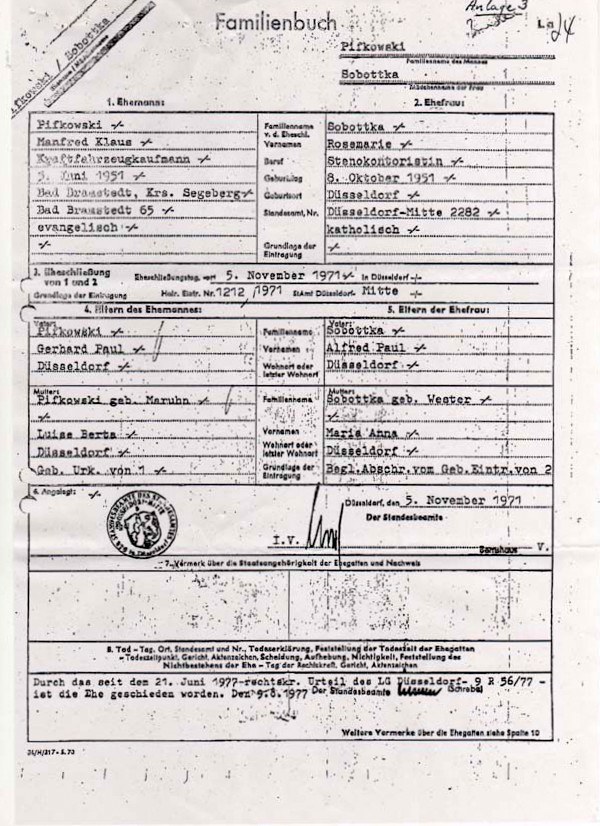 Anlage 3
Familienbuch
Pifkowski / Sobottka
Pifkowski
Familienname des Mannes
Sobottka
Mädchenname der Frau
1. Ehemann:
2. Ehefrau:
Pifkowski -/- Familienname v. d. Eheschl. Sobottka -/-
Manfred Klaus -/- Vornamen Rosemarie -/-
Kraftfahrzeugkaufmann -/- Beruf Stenokontoristin -/-
5. Juni 1951 -/- Geburtstag 8. Oktober 1951 -/-
Bad Bramstedt, Krs. Segeberg-/- Geburtsort Düsseldorf -/-
Bad Bramstedt 65 -/- Standesamt, Nr. Düsseldorf-Mitte 2282 -/-
evangelisch -/- katholisch -/-
-/- Grundlage der Eintragung -/-
3. Eheschließung von 1 und 2 Eheschließungstag, -ort 5. November 1971-/- in Düsseldorf -/-
Grundlage der Eintragung Heir. Eintr. Nr. 1212 /1971 StAmt Düsseldorf- Mitte -/-
4. Eltern des Ehemannes:
5. Eltern der Ehefrau:
Vater: Vater:
Pifkowski -/- Familienname Sobottka -/-
Gerhard Paul -/- Vornamen Alfred Paul -/-
Düsseldorf -/- Wohnort oder letzter Wohnort Düsseldorf -/-
Mutter: Mutter:
Pifkowski geb. Maruhn -/- Familienname Sobottka geb. Wester -/-
-/- -/-
Luise Berta -/- Vornamen Maria Anna -/-
Düsseldorf -/- Wohnort oder letzter Wohnort Düsseldorf -/-
Geb. Urk. von 1 -/- Grundlage der Eintragung Begl.Abschr.vom Geb.Eintr.von 2
6. Angelegt: -/-
Düsseldorf, den 5. November 1971
Der Standesbeamte
I.V.
V.
7. Vermerk über die Staatsangehörigkeit der Ehegatten und Nachweis
8. Tod – Tag, Ort, Standesamt und Nr., Todeserklärung, Feststellung der Todeszeit der Ehegatten
–Todeszeitpunkt, Gericht, Aktenzeichen, Scheidung, Aufhebung, Nichtigkeit, Feststellung des
Nichtbestehens der Ehe – Tag der Rechtskraft, Gericht, Aktenzeichen
Durch das seit dem 21. Juni 1977-rechtskr. Urteil des LG Düsseldorf- 9 R 56/77 -
ist die Ehe geschieden worden. Den 9.8.1977 Der Standesbeamte (Schrebe)
Weitere Vermerke über die Ehegatten siehe Spalte 10